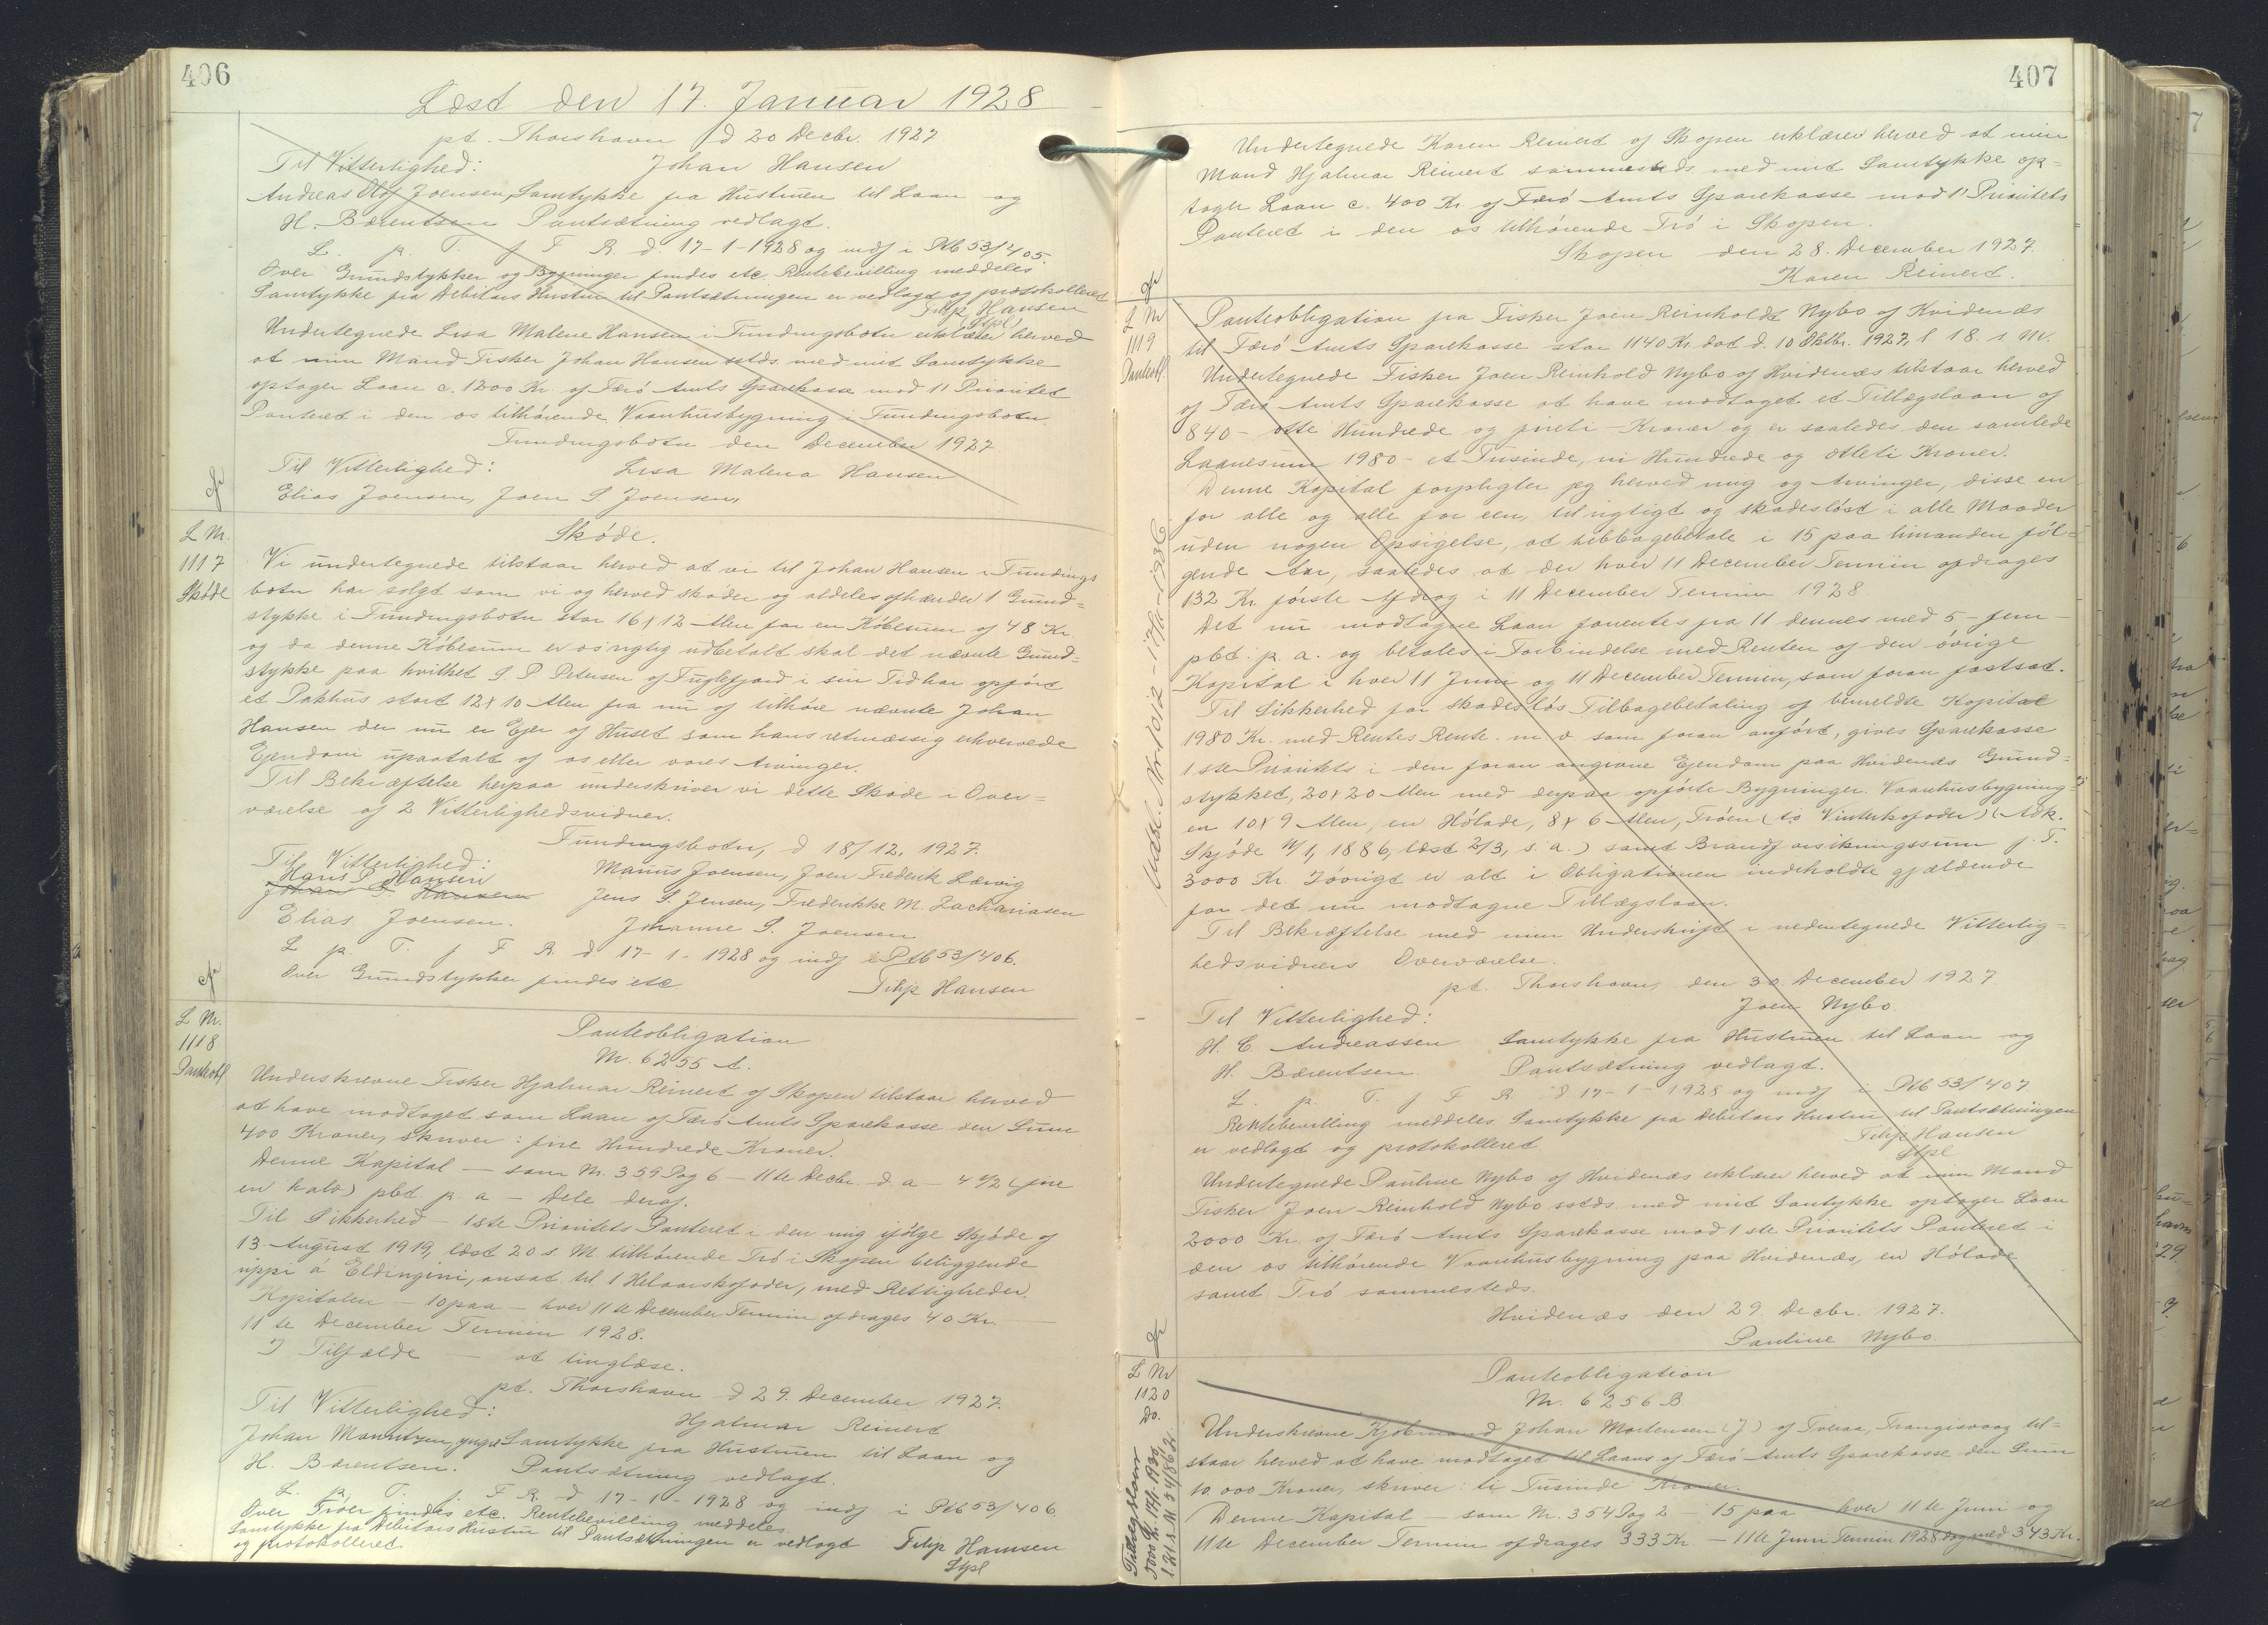 406
Læst den 17. Januar 1928
pt. Thorshavn d 20 Decbr. 1927
Til Vitterlighed: Johan Hansen
Andreas Olaf Joensen, Samtykke fra Hustruen til Laan og
H. Bærentsen Pantsætning vedlagt.
L. p. T. f F R. d. 17-1-1928 og indf i Ptb 53/405.
Over Grundstykker og Bygninger findes etc. Rentebevilling meddeles
Samtykke fra Debitors Hustru til Pantsætningen er vedlagt og protokolleret
Filip Hansen
Stpl
Undertegnede Lisa Malene Hansen i Funding­sbotn erklærer herved
at min Mand Fisker Johan Hansen sstds. med mit Samtykke
optager Laan c. 1200 Kr. af Færø Amts Sparekasse mod 1' Prioritet
Panteret i den os tilhørende Vaanhusbygning i Fundingsbotn
Fundingsbotn den December 1927
Til Vitterlighed: Lisa Malena Hansen
Elias Joensen, Joen S. Joensen,
L Nr.
1117
Skøde
Skøde.
Vi undertegnede tilstaar herved at vi til Johan Hansen i Fundings
botn har solgt som vi og herved skøder og aldeles afhænder 1 Grund=
stykke i Fundingsbotn stor 16 x 12 Alen for en Købesum af 48 Kr.
og da denne Købesum er os rigtig udbetalt skal det nævnte Grund=
stykke paa hvilket S. P. Petersen af Fuglefjord i sin Tid har opført
et Pakhus stort 12 x 10 Alen fra nu af tilhøre nævnte Johan
Hansen der nu er Ejer af Huset som hans retmæssig erhvervede
Ejendom upaatalt af os eller vores Arvinger.
Til Bekræftelse herpaa underskriver vi dette Skøde i Over=
værelse af 2 Vitterlighedsvidner.
Fundingsbotn, d 18/12. 1927.
Til Vitterlighed: Manus Joensen, Joen Frederik Lervig
Hans P. Hansen
Johan P. Hansen Jens S. Jensen, Frederikke M. Zachariasen
Elias Joensen. Johanne S. Joensen
L p. T. f F R. d 17-1-1928 og indf i Ptb 53/406.
Over Grundstykker findes etc Filip Hansen
L Nr.
1118
Panteobl
Panteobligation
Nr. 6255 A.
Underskrevne Fisker Hjalmar Reinert af Skopen tilstaar herved
at have modtaget som Laan af Færø Amts Sparekasse den Sum
400 Kroner, skriver: fire Hundrede Kroner.
Denne Kapital — som Nr. 359 Pag 6 — 11te Decbr. d. a — 4 1/2 (fire
en halv) pCt. p. a — Dele deraf.
Til Sikkerhed — 1ste Prioritets Panteret i den mig ifølge Skjøde af
13. August 1919, læst 20 s. M. tilhørende Trø i Skopen beliggende
uppi á Eldingini, ansat til 1 Helaarskofoder, med Rettigheder.
Kapitalen — 10 paa — hver 11te December Termin afdrages 40 Kr. —
11te December Termin 1928.
I Tilfælde — at tinglæse.
pt. Thorshavn d 29. December 1927.
Til Vitterlighed: Hjalmar Reinert
Johan Mouritzen, yngri Samtykke fra Hustruen til Laan og
H. Bærentsen. Pantsætning vedlagt.
L. p. T. f. F R. d 17-1-1928 og indf i Ptb 53/406.
Over Trøer findes etc. Rentebevilling meddeles
Samtykke fra Debitors Hustru til Pantsætningen er vedlagt Filip Hansen
og protokolleret. Stpl
407
Undertegnede Karen Reinert af Skopen erklærer herved at min
Mand Hjalmar Reinert sammesteds, med mit Samtykke op=
tager Laan c. 400 Kr. af Færø Amts Sparekasse mod 1' Prioritets
Panteret i den os tilhørende Trø i Skopen.
Skopen den 28. December 1927.
Karen Reinert.
L Nr
1119
Panteobl.
Panteobligation fra Fisker Joen Reinholdt Nybo af Hvidenæs
til Færø Amts Sparekasse stor 1140 Kr. dat d. 10 Oktbr. 1927, l 18. s. M.
Undertegnede Fisker Joen Reinhold Nybo af Hvidenæs tilstaar herved
af Færø Amts Sparekasse at have modtaget et Tillægslaan af
840 - otte Hundrede og fireti - Kroner og er saaledes den samlede
Laanesum 1980 - et Tusinde, ni Hundrede og otteti Kroner.
Denne Kapital forpligter jeg herved mig og Arvinger, disse en
for alle og alle for een, til rigtigt og skadesløst i alle Maader
uden nogen Opsigelse, at tilbagebetale i 15 paa hinanden føl=
gende Aar, saaledes at der hver 11 December Termin afdrages
132 Kr. første Afdrag i 11 December Termin 1928
Det nu modtagne Laan forrentes fra 11 dennes med 5 - fem -
pCt. p. a. og betales i Forbindelse med Renten af den øvrige
Kapital i hver 11 Juni og 11 December Termin, som foran fastsat.
Til Sikkerhed for skadesløs Tilbagebetaling af bemeldte Kapital
1980 Kr. med Rentes Rente m. v. som foran anført, gives Sparekasse
1ste Prioritets i den foran angivne Ejendom paa Hvidenæs Grund=
stykket, 20 x 20 Alen med derpaa opførte Bygninger. Vaanhusbygning=
en 10 x 9 Alen, en Hølade, 8 x 6 Alen, Trøen (to Vinterkofoder) (Adk.
Skjøde 11/1, 1886, læst 2/3, s. a.) samt Brandforsikringssum f. T.
3000 Kr. Iøvrigt er alt i Obligationen indeholdte gjældende
for det nu modtagne Tillægslaan.
Til Bekræftelse med min Underskrift i nedentegnede Vitterlig=
hedsvidners Overværelse.
pt. Thorshavn, den 30 December 1927
Til Vitterlighed: Joen Nybo.
H. C. Andreassen Samtykke fra Hustruen til Laan og
H. Bærentsen. Pantsætning vedlagt.
L. p. T. f F R. d 17-1-1928 og indf i Ptb 53/407
Rentebevilling meddeles Samtykke fra Debitors Hustru til Pantsætningen
er vedlagt og protokolleret. Filip Hansen
Stpl
Undertegnede Pauline Nybo af Hvidenæs erklærer herved at min Mand
Fisker Joen Reinhold Nybo sstds. med mit Samtykke optager Laan
2000 Kr. af Færø Amts Sparekasse mod 1ste Prioritets Panteret i
den os tilhørende Vaanhusbygning paa Hvidenæs, en Hølade
samt Trø sammesteds.
Hvidenæs den 29. Decbr. 1927.
Pauline Nybo.
L Nr
1120
Do.
Tillægslaan
5000 Kr. 17/1-1930
Panteobligation
Nr. 6256 B.
Underskrevne Kjøbmand Johan Mortensen (J) af Tveraa, Trangisvaag til=
staar herved at have modtaget til Laans af Færø Amts Sparekasse den Sum
10.000 Kroner, skriver: ti Tusinde Kroner.
Denne Kapital — som Nr. 354 Pag 2 — 15 paa hver 11te Juni og
11te December Termin afdrages 333 Kr. — 11te Juni Termin 1928 dog med 343 Kr.